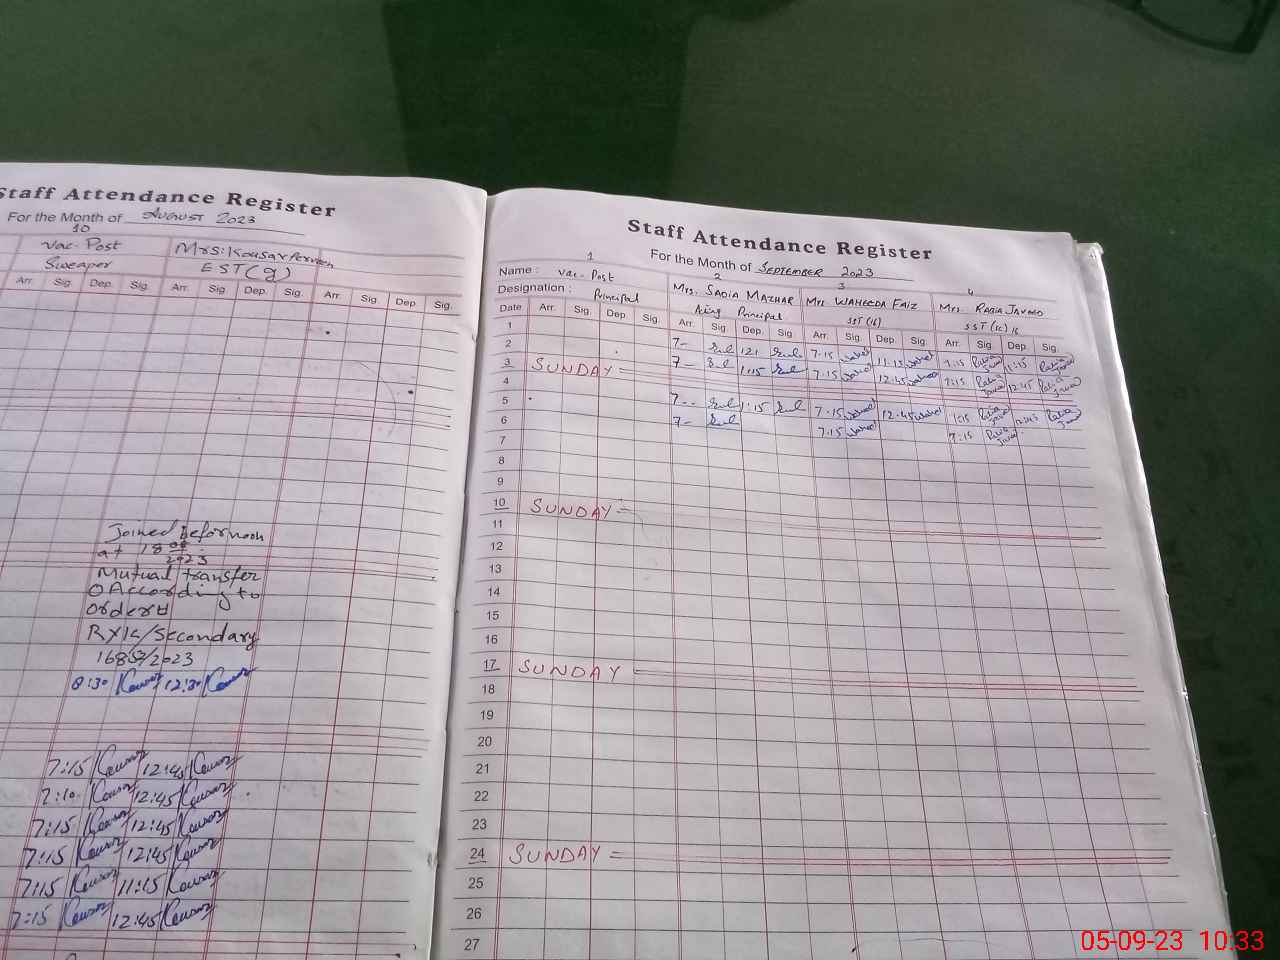 Staff Attendance Register
For the Month of AUGUST 2023
10
Vac. Post Mrs: Kousar Perveen
Sweaper EST (g)
Arr. Sig. Dep. Sig. Arr. Sig. Dep. Sig. Arr. Sig. Dep. Sig.
Joined beforenoon
at 18 08 2023
Mutual transfer
According to
order #
RYK/Secondary
8:30 Kousar 12:30 Kousar
7:15 Kousar 12:45 Kousar
7:10 Kousar 12:45 Kousar
7:15 Kousar 12:45 Kousar
7:15 Kousar 12:45 Kousar
7:15 Kousar 11:15 Kousar
7:15 Kousar 12:45 Kousar
Staff Attendance Register
For the Month of SEPTEMBER 2023
1 2 3 4
Name : Vac. Post Mrs. SADIA MAZHAR Mrs. WAHEEDA FAIZ Mrs. RABIA JAVAID
Designation : Principal Acing Principal SST (16) SST (sc) 16
Date Arr. Sig. Dep. Sig. Arr. Sig. Dep. Sig. Arr. Sig. Dep. Sig. Arr. Sig. Dep. Sig.
1 7- 7:15 Wahed 11:15 Wahed 7:15 Rabia Javaid 11:15 Rabia Javaid
2 7- 1:15 7:15 Wahed 12:45 Wahed 7:15 Rabia Javaid 12:45 Rabia Javaid
3 SUNDAY
4 7-- 1:15 7:15 Wahed 12:45 Wahed 7:15 Rabia Javaid 12:45 Rabia Javaid
5 7- 7:15 Wahed 7:15 Rabia Javaid
6
7
8
9
10 SUNDAY
11
12
13
14
15
16
17 SUNDAY
18
19
20
21
22
23
24 SUNDAY
25
26
27
05-09-23 10:33